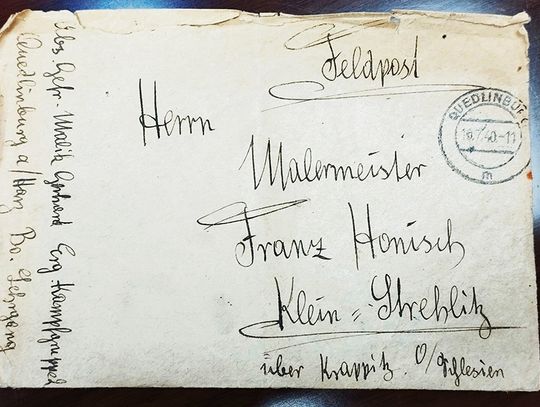 Feldpost
QUEDLINBURG
16.7.40-11
m
Herrn
Malermeister
Franz Honisch
Klein=Strehlitz
über Krappitz. O/Schlesien
Abs. Gefr. Malik Gerhard Erg. Kampfgruppe
Quedlinburg a/Harz Bo. Lehrgang